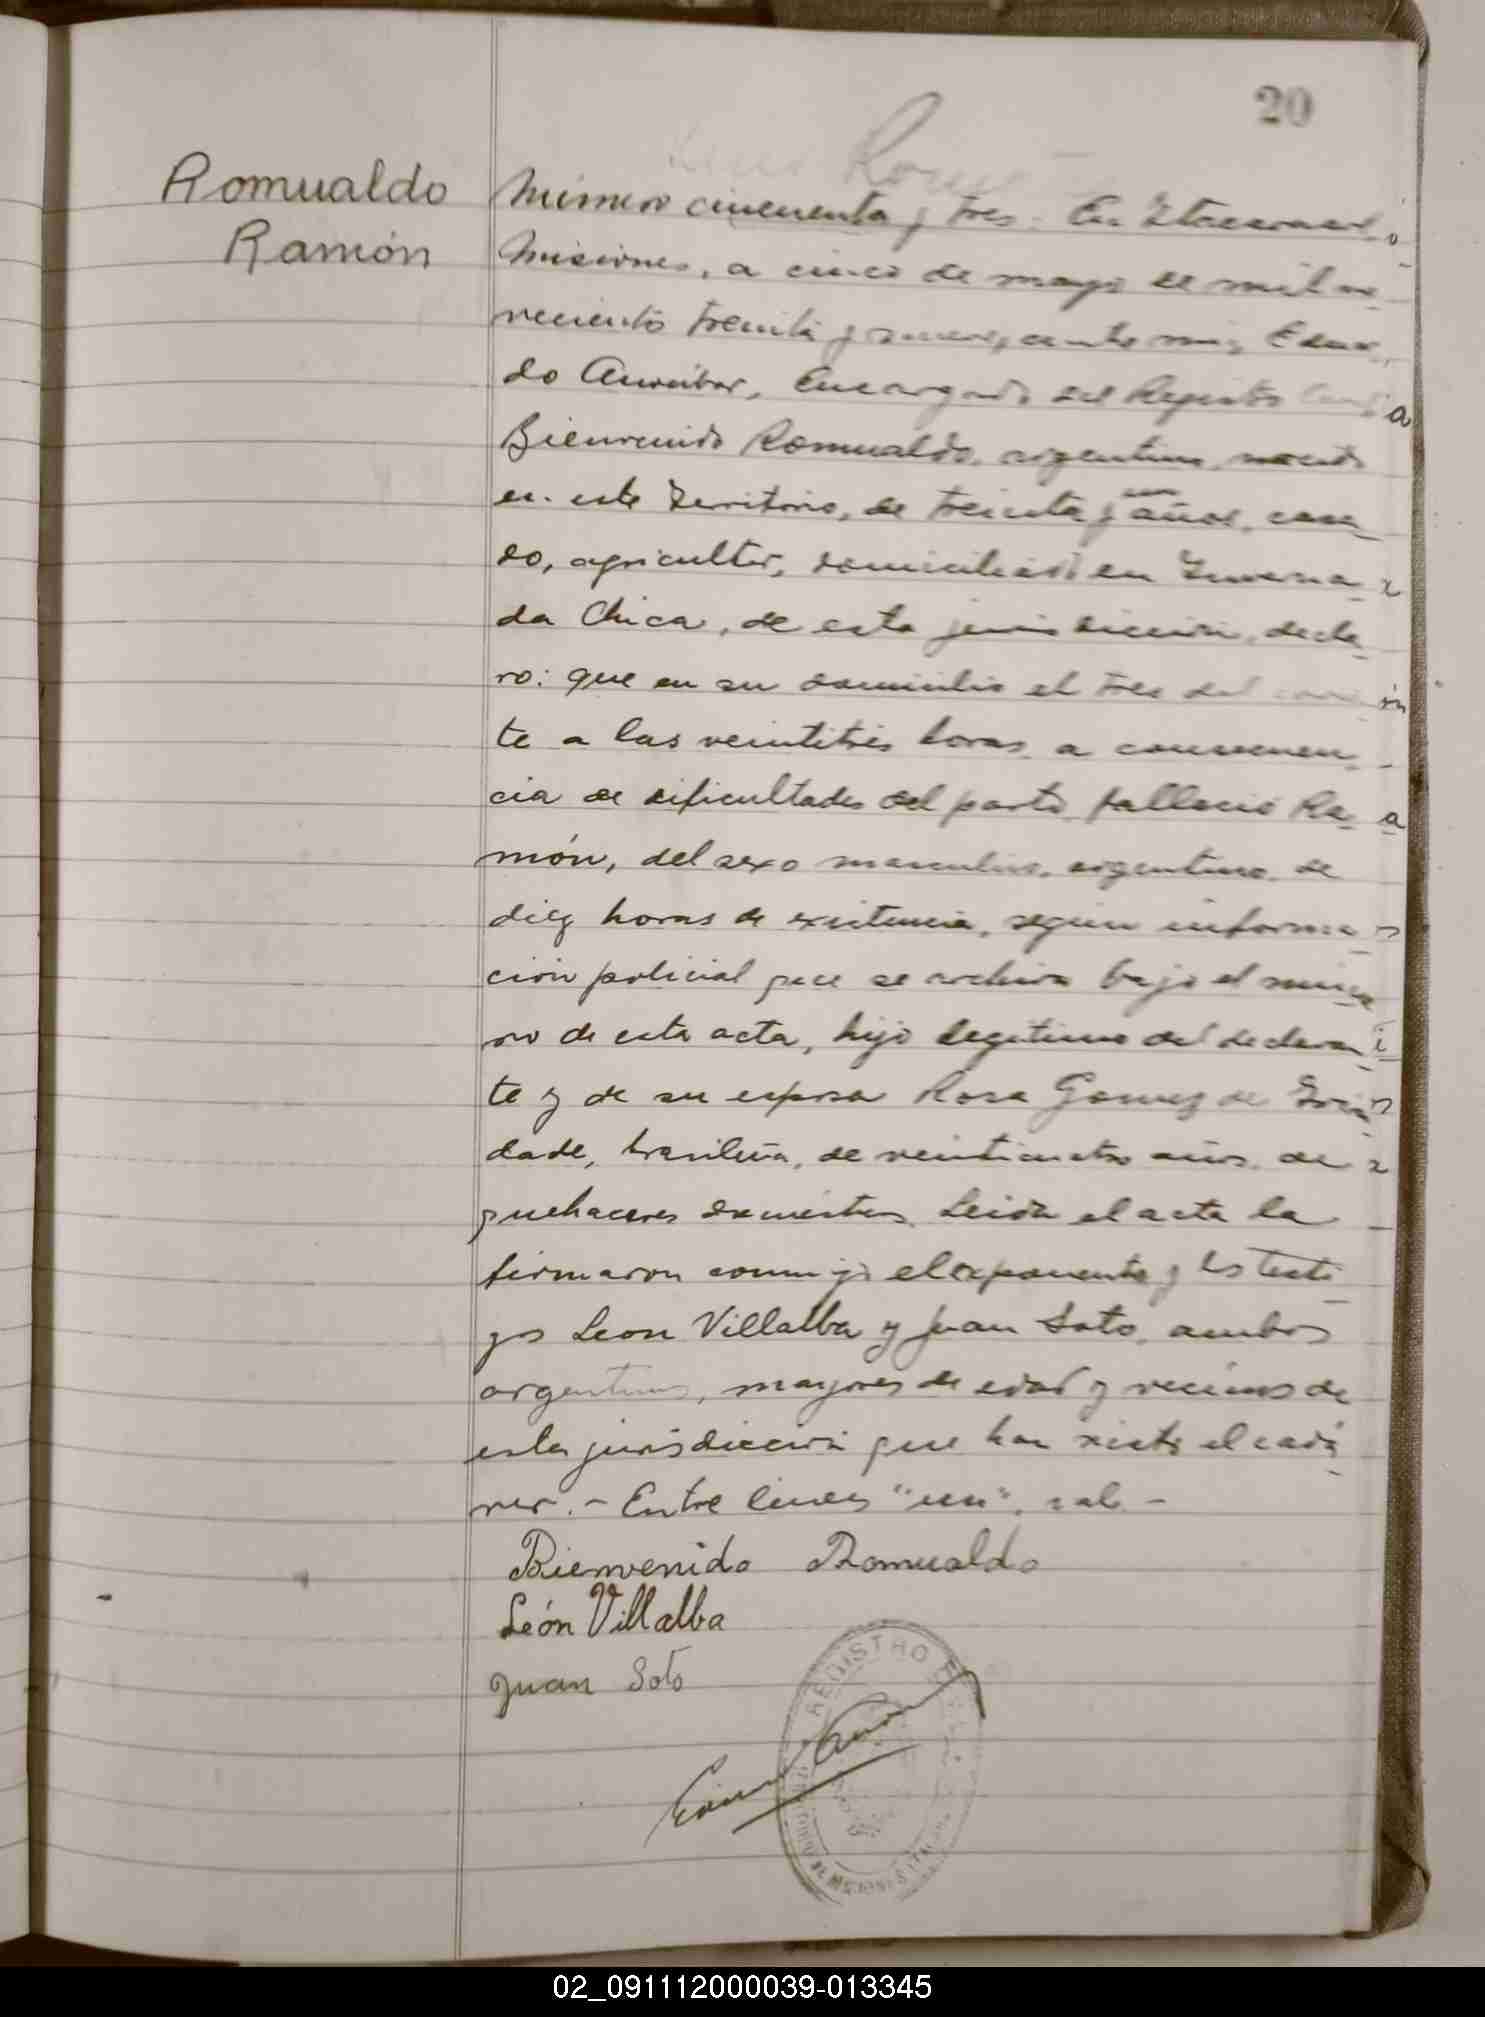 20
Romualdo
Ramón
Número cincuenta y tres. En Itacaruaré
Misiones, a cinco de mayo de mil no
vecientos treinta y nueve, ante mi, Eduar
do Encargado del Registro
Bienvenido Romualdo, argentino, nacido
en este Territorio, de treinta y un años, casa
do, agricultor, domiciliado en Inverna
da Chica, de esta jurisdicción, decla
ro: que en su domicilio el tres del corrien
te a las veintitrés horas, a consecuen
cia de dificultades del parto falleció Ra
món, del sexo masculino, argentino, de
diez horas de existencia, según informa
ción policial que se archiva bajo el núme
ro de esta acta, hijo legitimo del declaran
te y de su esposa Rosa Gomez de Trin
dade, brasileña, de veinticuatro años, de
quehaceres domésticos. Leida el acta la
firmaron conmigo el exponente y los testi
gos Leon Villalba y Juan Soto, ambos
argentinos, mayores de edad y vecinos de
esta jurisdicción que han visto el cadá
ver.- Entre lineas "un", vale -
Bienvenido Romualdo
León Villalba
Juan Soto
REGISTRO
02_091112000039-013345